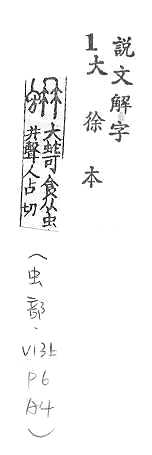 説文解字
1.大徐本
蚦
大蛇可食从虫
冄聲人占切
(虫部.V13上 P6 A4)